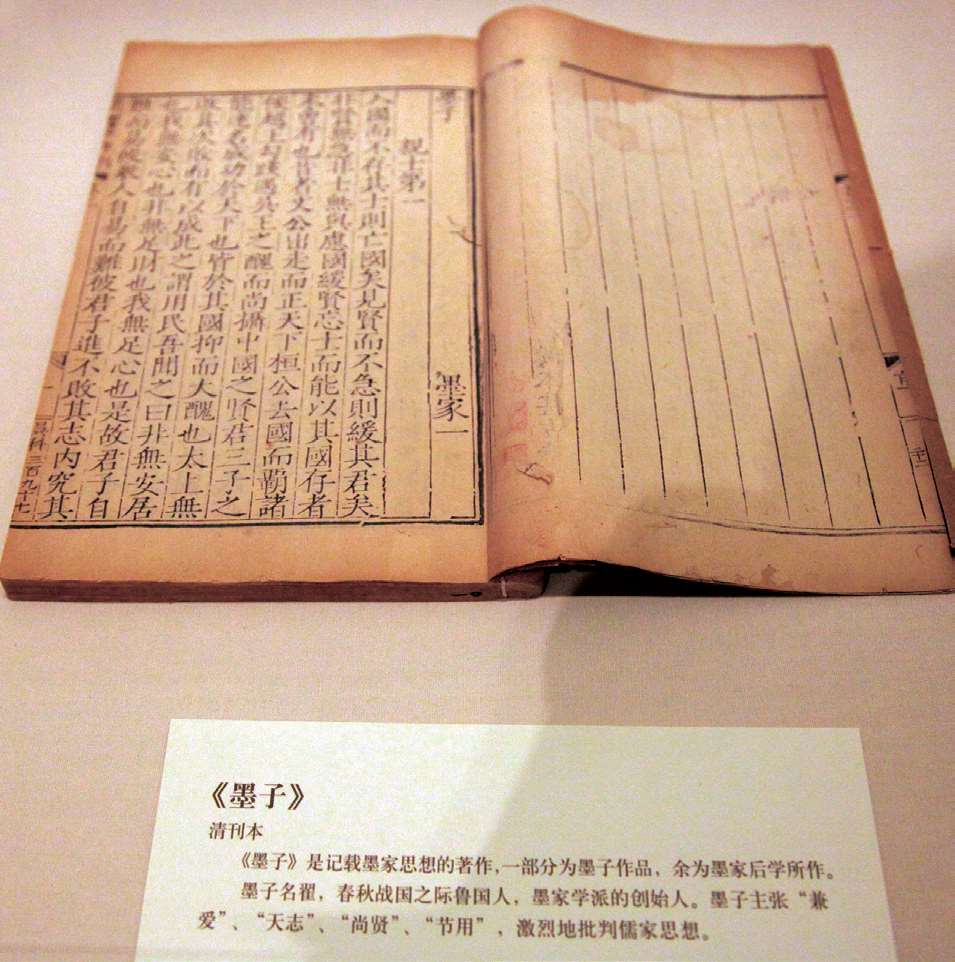 墨子 墨家一
親士第一
入國而不存其士則亡國矣見賢而不急則緩其君矣
非賢無急非士無與慮國緩賢忘士而能以其國存者
未曾有也昔者文公出走而正天下桓公去國而覇諸
侯越王句踐遇吳王之醜而尚攝中國之賢君三子之
能達名成功於天下也皆於其國抑而大醜也太上無
敗其次敗而有以成此之謂用民吾聞之曰非無安居
也我無安心也非無足財也我無足心也是故君子自
難而易彼衆人自易而難彼君子進不敗其志內究其
三百九十七
《墨子》
清刊本
《墨子》是记载墨家思想的著作,一部分为墨子作品，余为墨家后学所作。
墨子名翟，春秋战国之际鲁国人，墨家学派的创始人。墨子主张“兼
爱”、“天志”、“尚贤”、“节用”，激烈地批判儒家思想。